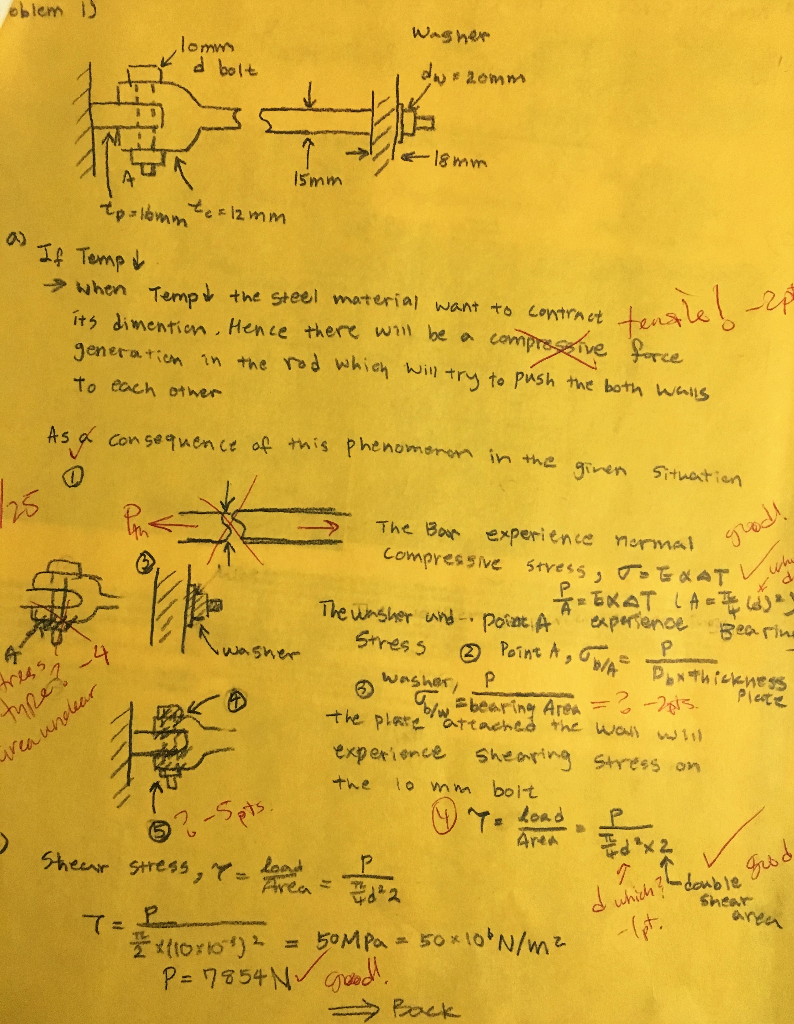 oblem 1)
10mm
d bolt
Washer
dw = 20mm
A
15mm
18mm
tp=16mm tc=12mm
a)
If Temp↓
→ When Temp↓ the steel material want to contract
tensile! -2pt
its dimention. Hence there will be a compressive force
generation in the rod which will try to push the both walls
to each other
As a consequence of this phenomenon in the given situation
①
/25
Pth
good!
The Bar experience normal
Compressive stress, σ=Eα∆T
P/A = Eα∆T (A = π/4 (d)²)
③
washer
The washer und.. point A experience Bearin
Stress ② Point A, σb/A = P / Db×thickness Plate
A
stress?
type? -4
area unclear
③ washer, σb/w = P / bearing Area = ? -2pts.
the plate attached the wall will
experience shearing stress on
the 10 mm bolt
④
⑤ ? -5pts.
④ τ = load/Area = P / π/4 d²×2
good
double
shear
area
d which?
-1pt.
)
Shear stress, τ = load/Area = P / π/4 d² 2
τ = P / π/2 ×(10×10⁻³)² = 50MPa = 50×10⁶ N/m²
P = 7854N
good!
⟹ Back